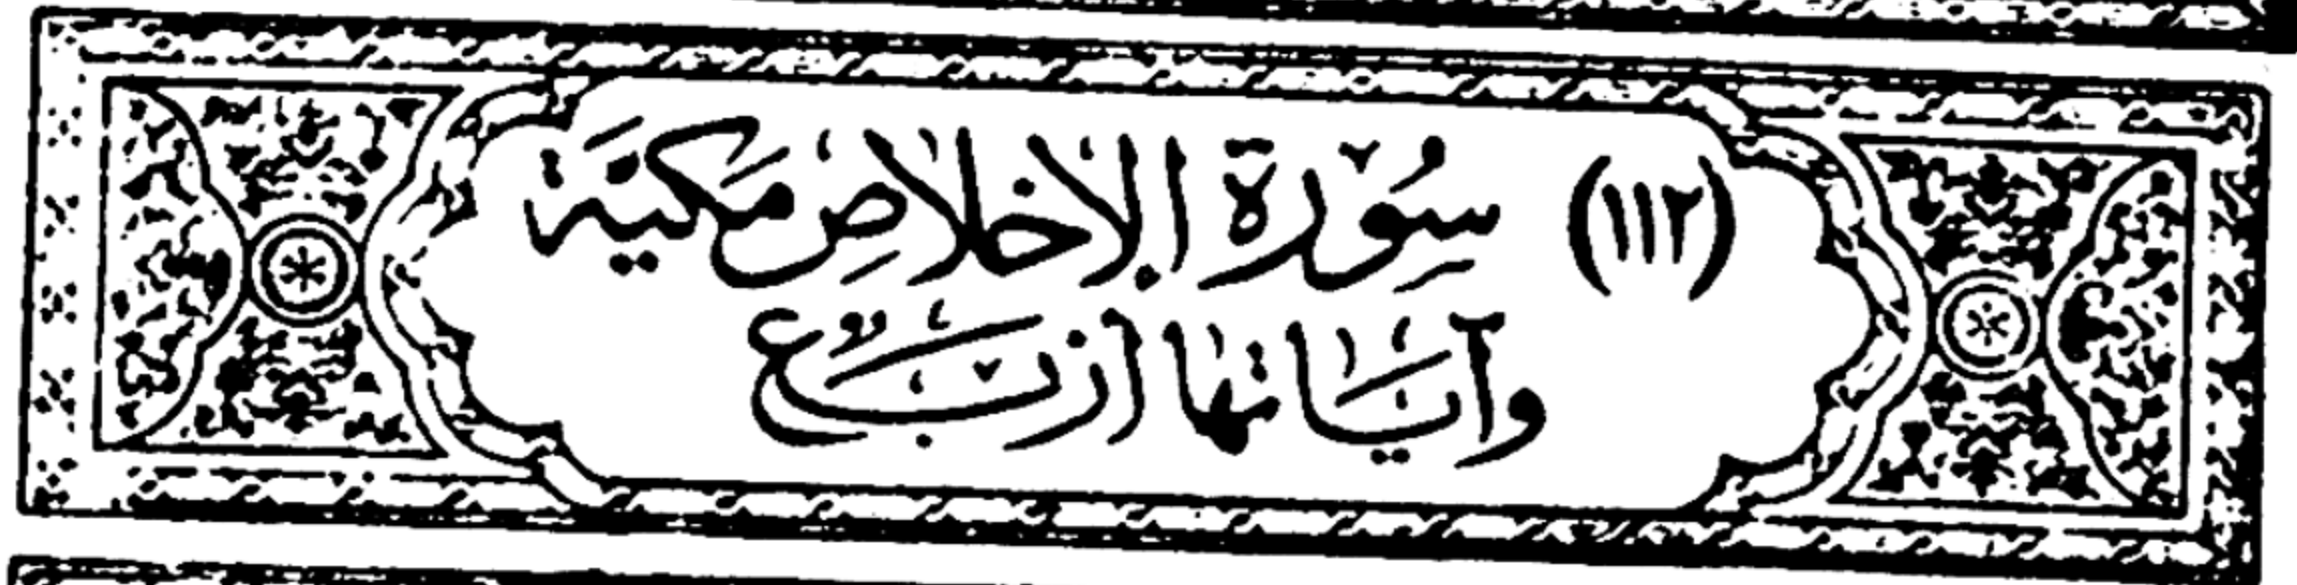 (١١٢) سُوۡرَةُ الإِخْلَاصِ مَكِّيَّةٌ
وَآيَاتُهَا أَرْبَعٌ